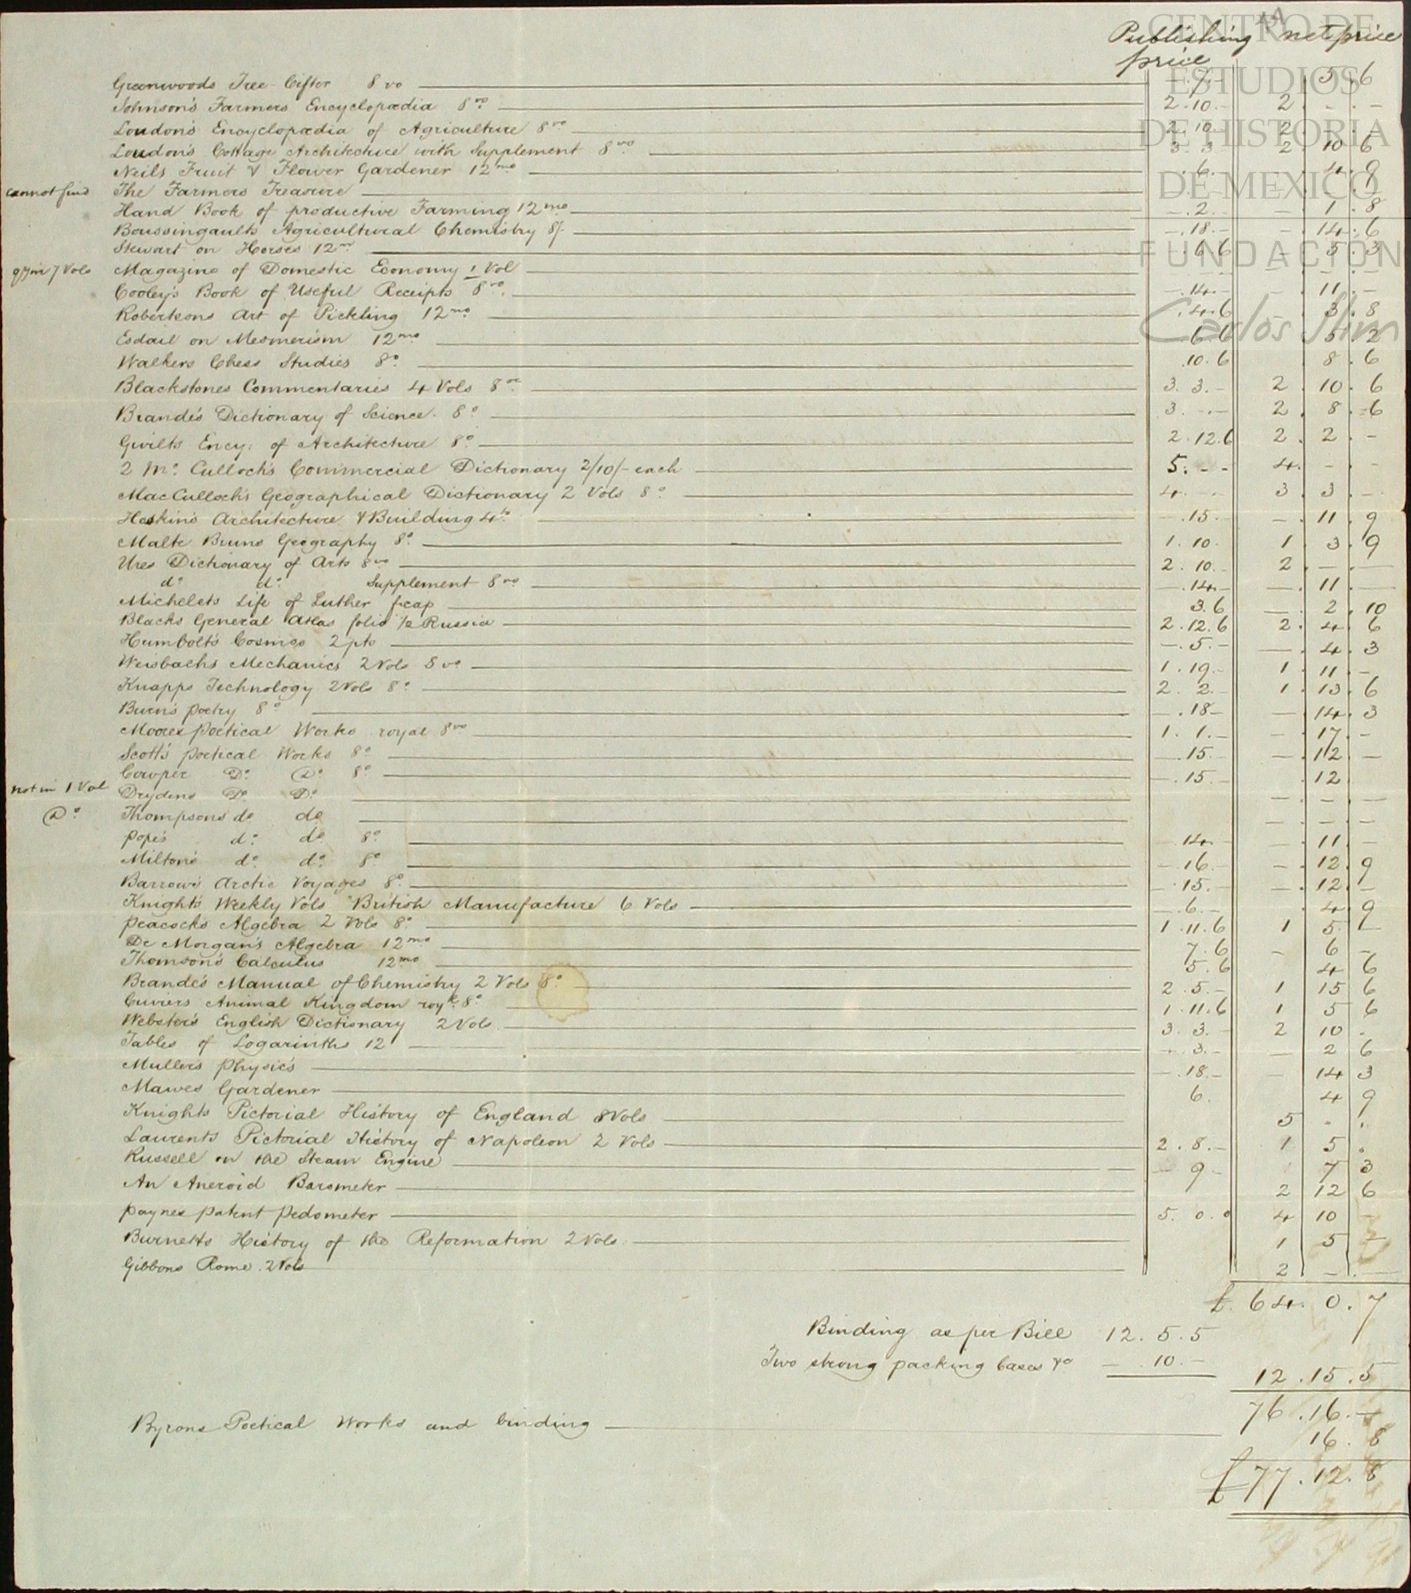 CENTRO DE
ESTUDIOS
DE HISTORIA
DE MEXICO
FUNDACIÓN
Carlos Slim
Publishing price net price
Greenwoods Tree-Lifter 8vo - 7 - 5 . 6
Johnson's Farmers Encyclopædia 8vo 2 . 10 . - 2 . - . -
Loudon's Encyclopædia of Agriculture 8vo 2 . 10 . - 2 . - . -
Loudon's Cottage Architecture with Supplement 8vo 3 . 3 2 . 10 . 6
Neils Fruit & Flower Gardener 12mo . 6 . - 4 . 9
cannot find The Farmers Treasure
Hand Book of productive Farming 12mo - . 2 . - - . 1 . 8
Boussingaults Agricultural Chemistry 8/- - . 18 . - - . 14 . 6
Stewart on Horses 12mo . 6 6 - . 5 . 3
Magazine of Domestic Economy 1 Vol - . - . -
7 Vols
Cooley's Book of Useful Receipts 8vo - . 14 . - - . 11 . -
Robertsons Art of Pickling 12mo . 4 . 6 - . 3 . 8
Esdail on Mesmerism 12mo 6 6 5 . 2
Walkers Chess Studies 8o . 10 . 6 8 . 6
Blackstones Commentaries 4 Vols 8vo 3 . 3 . - 2 . 10 . 6
Brande's Dictionary of Science 8o 3 . - . - 2 . 8 . 6
Gwilts Ency: of Architecture 8o 2 . 12 . 6 2 . 2 . -
2 Mc Culloch's Commercial Dictionary 2/10/- each 5 . - - 4 . - . -
MacCulloch's Geographical Dictionary 2 Vols 8o 4 . - . - 3 . 3 . -
Hoskins Architecture & Building 4to - . 15 . - - . 11 . 9
Malte Bruns Geography 8o 1 . 10 . 1 . 3 . 9
Ures Dictionary of Arts 8vo 2 . 10 . - 2 . - . -
do do Supplement 8vo - . 14 . - - . 11 . -
Michelets Life of Luther fcap 3 . 6 - . 2 . 10
Blacks General Atlas folio 1/2 Russia 2 . 12 . 6 2 . 4 . 6
Humbolt's Cosmos 2 pts - . 5 . - - . 4 . 3
Weisbachs Mechanics 2 Vols 8vo 1 . 19 . - 1 . 11 . -
Knapps Technology 2 Vols 8o 2 . 2 . - 1 . 13 . 6
Burn's Poetry 8o - . 18 - - . 14 . 3
Moores Poetical Works royal 8vo 1 . 1 . - - . 17 . -
Scott's Poetical Works 8o - . 15 . - . 12 . -
Cowper Do Do 8o - . 15 . - . 12
not in 1 Vol Drydens Do Do - . - . -
Do Thompsons do do - . - . -
Pope's do do 8o 14 - - . 11 . -
Milton's do do 8o - . 16 . - . 12 . 9
Barrow's Arctic Voyages 8o - . 15 . - - . 12 . -
Knights Weekly Vols British Manufacture 6 Vols - . 6 . - . 4 . 9
Peacocks Algebra 2 Vols 8o 1 . 11 . 6 1 5 . -
De Morgan's Algebra 12mo 7 . 6 - 6 -
Thomson's Calculus 12mo 5 . 6 4 6
Brande's Manual of Chemistry 2 Vols 8o 2 . 5 . - 1 15 6
Cuviers Animal Kingdom royl 8o 1 . 11 . 6 1 5 6
Webster's English Dictionary 2 Vols 3 . 3 . - 2 10 .
Tables of Logarinths 12 - . 3 . - - 2 6
Mullers Physics - . 18 . - - 14 3
Mawes Gardener 6 . 4 9
Knights Pictorial History of England 8 Vols 5 . "
Laurents Pictorial History of Napoleon 2 Vols 2 . 8 . - 1 5 .
Russell on the Steam Engine - 9 - 7 3
An Aneroid Barometer 2 12 6
Paynes Patent Pedometer 5 . 0 . 0 4 10 -
Burnetts History of the Reformation 2 Vols. 1 5 -
Gibbons Rome . 2 Vols 2 - . -
£ 64 . 0 . 7
Binding as per Bill 12 . 5 . 5
Two strong packing Cases &c - . 10 . - 12 . 15 . 5
76 . 16 . -
Byrons Poetical Works and binding 16 . 8
£ 77 . 12 . 8